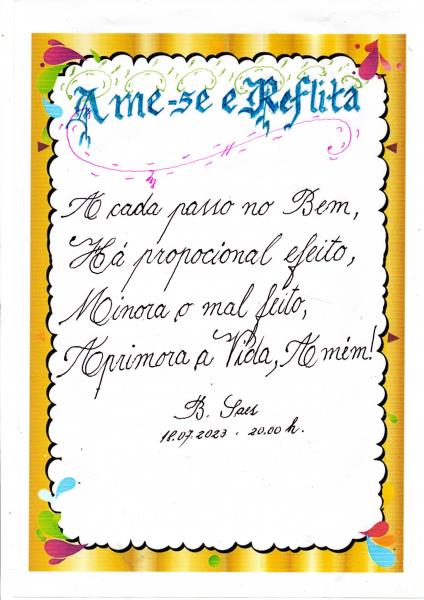 Ame-se e Reflita
A cada passo no Bem,
Há propocional efeito,
Minora o mal feito,
Aprimora a Vida, Amém!
B. Saes
18.07.2023 . 20.00 h.